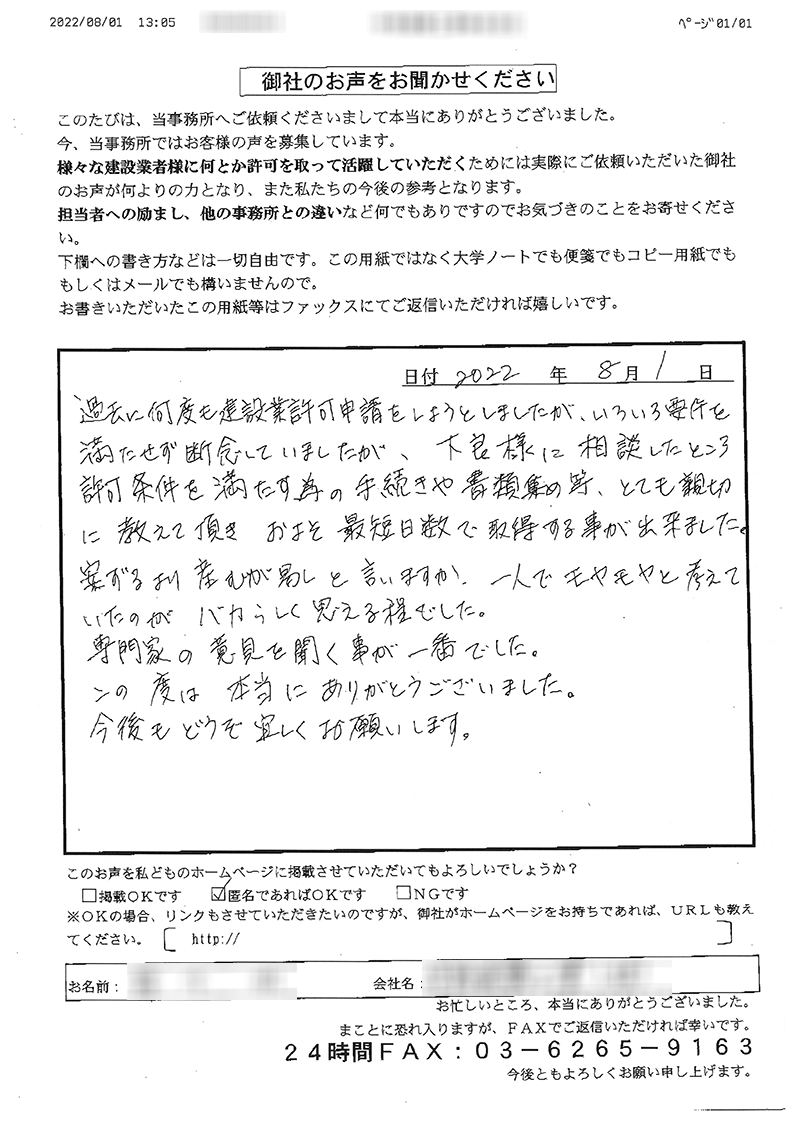 2022/08/01 13:05
ページ01/01
御社のお声をお聞かせください
このたびは、当事務所へご依頼くださいまして本当にありがとうございました。
今、当事務所ではお客様の声を募集しています。
様々な建設業者様に何とか許可を取って活躍していただくためには実際にご依頼いただいた御社
のお声が何よりの力となり、また私たちの今後の参考となります。
担当者への励まし、他の事務所との違いなど何でもありですのでお気づきのことをお寄せくださ
い。
下欄への書き方などは一切自由です。この用紙ではなく大学ノートでも便箋でもコピー用紙でも
もしくはメールでも構いませんので。
お書きいただいたこの用紙等はファックスにてご返信いただければ嬉しいです。
日付 2022 年 8月 1 日
過去に何度も建設業許可申請をしようとしましたが、いろいろ要件を
満たせず断念していましたが、下良様に相談したところ
許可条件を満たす為の手続きや書類集め等、とても親切
に教えて頂き およそ最短日数で取得する事が出来ました。
案ずるより産むが易しと言いますか、一人でモヤモヤと考えて
いたのが バカらしく思える程でした。
専門家の意見を聞く事が一番でした。
この度は 本当にありがとうございました。
今後もどうぞ宜しくお願いします。
このお声を私どものホームページに掲載させていただいてもよろしいでしょうか？
□掲載OKです ☑匿名であればOKです □NGです
※OKの場合、リンクもさせていただきたいのですが、御社がホームページをお持ちであれば、URLも教え
てください。[ http:// ]
お名前： 会社名：
お忙しいところ、本当にありがとうございました。
まことに恐れ入りますが、FAXでご返信いただければ幸いです。
24時間FAX：03－6265－9163
今後ともよろしくお願い申し上げます。